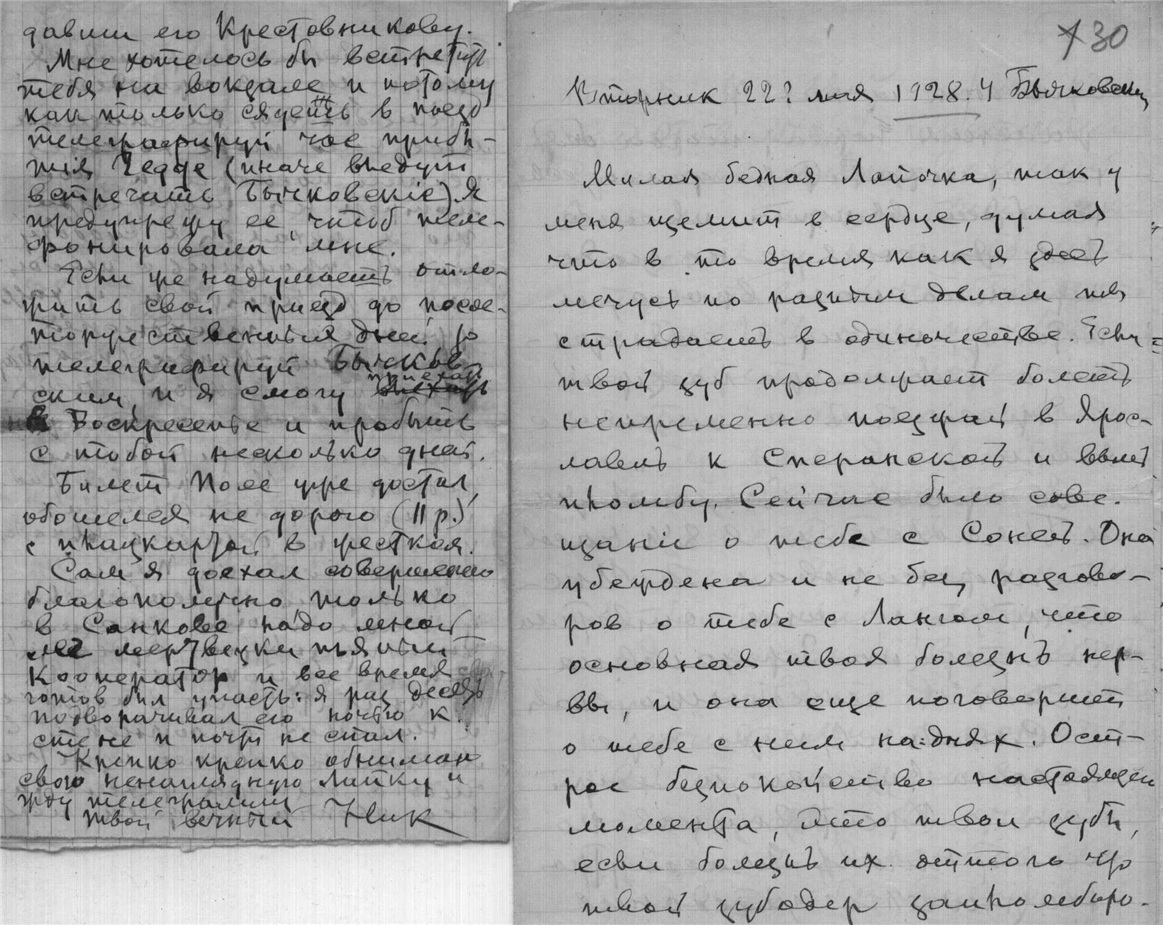 давши его Крестовникову.
Мне хотелось бы встретить
тебя на вокзале и потому
как только сядешь в поезд
телеграфируй час прибы-
тия Гедде (иначе выедут
встречать Бычковские) Я
предупрежу ее, чтоб теле-
фонировала мне.
Если же надумаешь отло-
жить свой приезд до после-
дней, то
телеграфируй Бычков-
ским, и я смогу приехать
в Воскресенье и пробыть
с тобой несколько дней.
Билет Поле уже достал,
обошелся не дорого (11 р.)
с плацкартой в жесткой.
Сам я доехал совершенно
благополучно только
в Санкове надо мной
мертвецки пьяный
кооператор и все время
готов был упасть: я раз десять
подворачивал его к
стене и почти не спал.
Крепко крепко обнимаю
свою ненаглядную Лапку и
жду телеграммы
твой вечный Ник
130
Вторник 22 мая 1928. Ч Бычковских
Милая бедная Лапочка, так у
меня щемит в сердце, думая
что в то время как я здесь
мечусь по разным делам ты
страдаешь в одиночестве. Если
твой зуб продолжает болеть
непременно поезжай в Яро-
славль к Сперанской и вынь
пломбу. Сейчас было сове-
щание о тебе с Соней. Она
убеждена и не без разгово-
ров о тебе с Лангом, что
основная твоя болезнь нер-
вы, и она еще поговорит
о тебе с ним на-днях. Ост-
рое безпокойство настоящего
момента, это твои зубы,
если болезнь их оттого что
твой зубодер запломбиро-